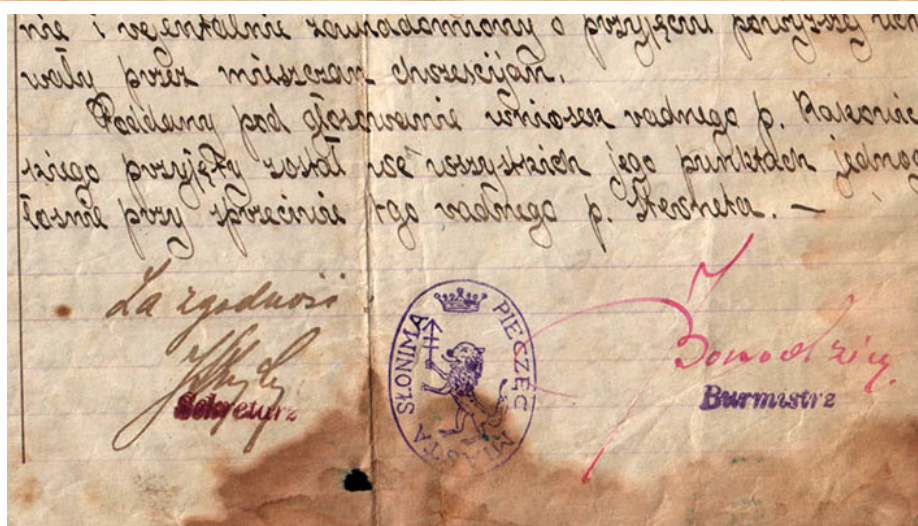 nie i wejentalnie zawiadomiony o przyjęciu powyższej uch
wały przez mieszczan chrześcijan.
Poddany pod głosowanie wniosek radnego p. Rakowic
kiego przyjęty został we wszystkich jego punktach jednog
łośnie przy sprzeciwie 1go radnego p.
Za zgodność:
Sekretarz
PIECZĘĆ MIASTA SŁONIMA
Burmistrz